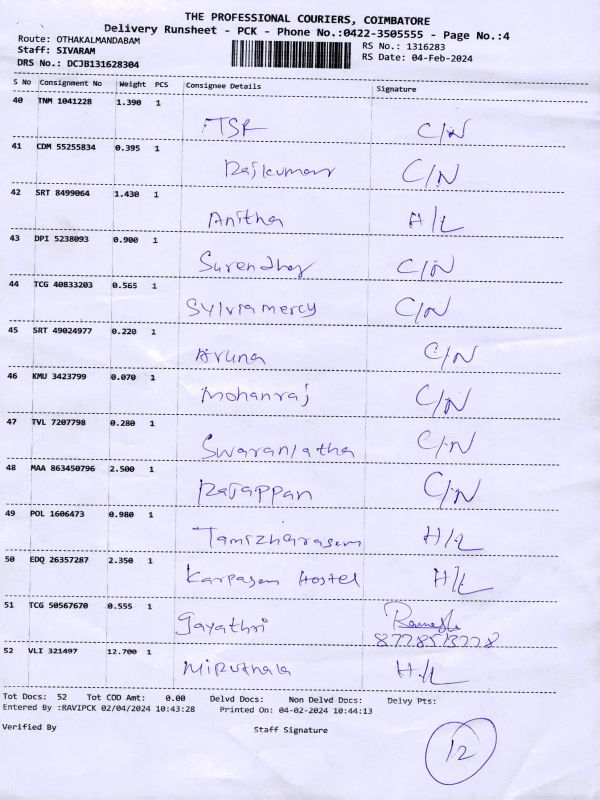 THE PROFESSIONAL COURIERS, COIMBATORE
Delivery Runsheet - PCK - Phone No.:0422-3505555 - Page No.:4
Route: OTHAKALMANDABAM
RS No.: 1316283
Staff: SIVARAM
RS Date: 04-Feb-2024
DRS No.: DCJB131628304
S No Consignment No Weight PCS Consignee Details Signature
40 TNM 1041228 1.390 1
TSR C/N
41 CDM 55255834 0.395 1
Rajkumar C/N
42 SRT 8499064 1.430 1
Anitha H/L
43 DPI 5238093 0.900 1
Surendhar C/N
44 TCG 40833203 0.565 1
Sylviamercy C/N
45 SRT 49024977 0.220 1
Aruna C/N
46 KMU 3423799 0.070 1
Mohanraj C/N
47 TVL 7207798 0.280 1
Swaranlatha C/N
48 MAA 863450796 2.500 1
Rajappan C/N
49 POL 1606473 0.980 1
Tamizharasan H/L
50 EDQ 26357287 2.350 1
Karpagam Hostel H/L
51 TCG 50567670 0.555 1
Gayathri Ramesh
52 VLI 321497 12.700 1
H/L
Tot Docs: 52 Tot COD Amt: 0.00 Delvd Docs: Non Delvd Docs: Delvy Pts:
Entered By :RAVIPCK 02/04/2024 10:43:28 Printed On: 04-02-2024 10:44:13
Verified By Staff Signature
12